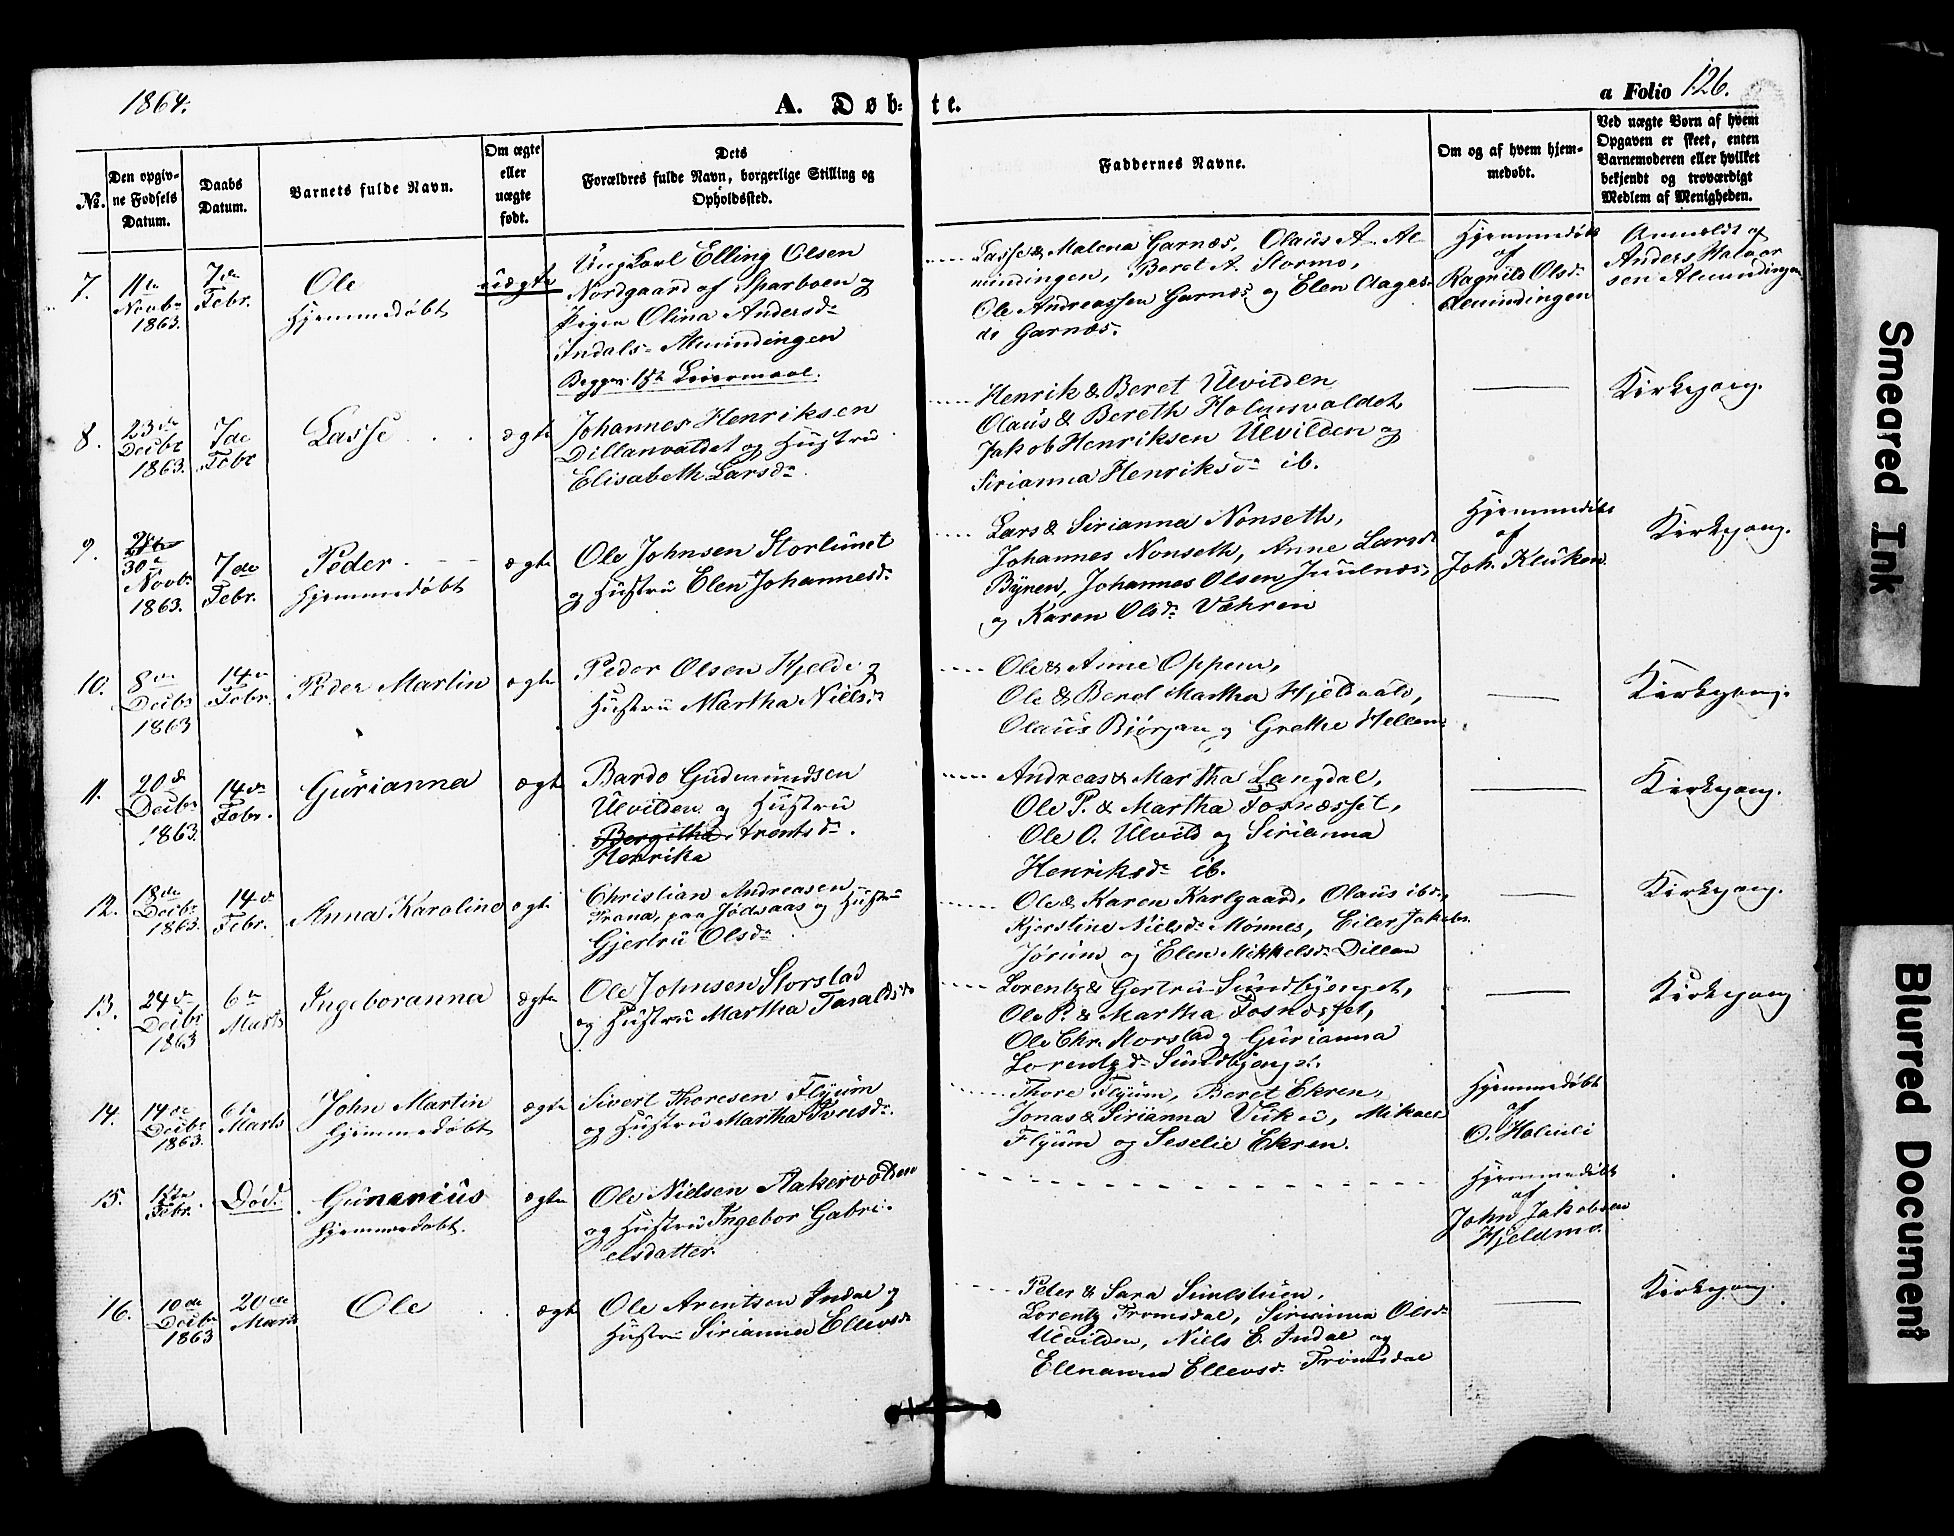 1864.
A. Døb-
te.
a Folio 126.
No.
Den opgiv-
ne Fødsels
Datum.
Daabs
Datum.
Barnets fulde Navn.
Om ægte
eller
uægte
født.
Dets
Forældres fulde Navn, borgerlige Stilling og
Opholdssted.
Faddernes Navne.
Om og af hvem hjem-
medøbt.
Ved uægte Børn af hvem
Opgaven er skeet, enten
Barnemoderen eller hvilket
bekjendt og troværdigt
Medlem af Menigheden.
7.
11te
Novbr
1863.
7de
Febr.
Ole
Hjemmedøbt
uægte
Ungkarl Elling Olsen
Nordgaard af Sparboen og
Pigen Olina Andersdr
Indals-Almindingen
Begges 1ste Leiermaal.
Lasse & Malena Garnæs, Olaus A. Al-
mindingen, Beret A. Stormo,
Ole Andreassen Garnæs og Elen Aages-
dr Garnæs.
Hjemmedøbt
af
Ragnild Olsdr
Almindingen
Anmeldt af
Anders Halvor
sen Almindingen
8.
23de
Decbr
1863.
7de
Febr
Lasse
ægte
Johannes Henriksen
Dillanvaldet og Hustru
Elisabeth Larsdr
Henrik & Beret Ulvilden
Olaus & Bereth Holmvaldet
Jakob Henriksen Ulvilden og
Sirianna Henriksdr ib.
Kirkegang.
9.
30te
Novbr
1863.
7de
Febr.
Peder
Hjemmedøbt
ægte
Ole Johnsen Storlunet
og Hustru Elen Johannesdr
Lars & Sirianna Nonseth,
Johannes Nonseth, Anne Larsdr
Bynen, Johannes Olsen Juulnæs,
og Karen Olsdr Væhren
Hjemmedøbt
af
Joh. Kluken
Kirkegang.
10.
8de
Decbr
1863
14de
Febr.
Peder Martin
ægte
Peder Olsen Hjelde og
Hustru Martha Nielsdr
Ole & Anne Oppem,
Ole & Beret Martha Hjelvald,
Olaus Bjørgan og Grethe Hellem
Kirkegang.
11.
20de
Decbr
1863.
14de
Febr.
Gurianna
ægte
Bardo Gudmundsen
Ulvilden og Hustru
Bergitha Arentsdr.
Henrika
Andreas & Martha Langdal,
Ole P. & Martha Fosnæsset,
Ole O. Ulvild og Sirianna
Henriksdr ib.
Kirkegang.
12.
18de
Decbr
1863.
14de
Febr.
Anna Karoline
ægte
Christian Andreasen
Vrana, paa Jødsaas og Hustru
Gjertru Olsdr
Ole & Karen Karlgaard, Olaus ibd.,
Kjerstine Nielsdr Mønnes, Eiler Jakobs.
Jørum og Elen Mikkelsdr Dillan
Kirkegang.
13.
24de
Decbr
1863
6te
Marts
Ingeboranna
ægte
Ole Johnsen Storstad
og Hustru Martha Taraldsdr
Lorentz & Gertru Sundbyenget,
Ole P. & Martha Fosnæsset,
Ole Chr. Storstad og Gurianna
Lorentzdr Sundbyenget.
Kirkegang
14.
14de
Decbr
1863.
6te
Marts
John Martin
Hjemmedøbt
ægte
Sivert Thoresen Flyum
og Hustru Martha Iversdr.
Thore Flyum, Beret Ekren,
Jonas & Sirianna Vuku, Mikael
Flyum og Seselie Ekren.
Hjemmedøbt
af
O. Holmli
15.
15de
Febr.
Død.
Gunerius
Hjemmedøbt.
ægte
Ole Nielsen Aakervolden
og Hustru Ingebor Gabri-
elsdatter.
Hjemmedøbt
af
John Jakobsen
Hjeldmo.
16.
10de
Decbr
1863
20de
Marts
Ole
ægte
Ole Arentsen Indal og
Hustru Sirianna Ellevsdr
Peter & Sara Sumstuen,
Lorentz Tromsdal, Sirianna Olsdr
Ulvilden, Niels E. Indal og
Ellenanna Ellevsdr Tromsdal
Kirkegang.
Smeared Ink
Blurred Document